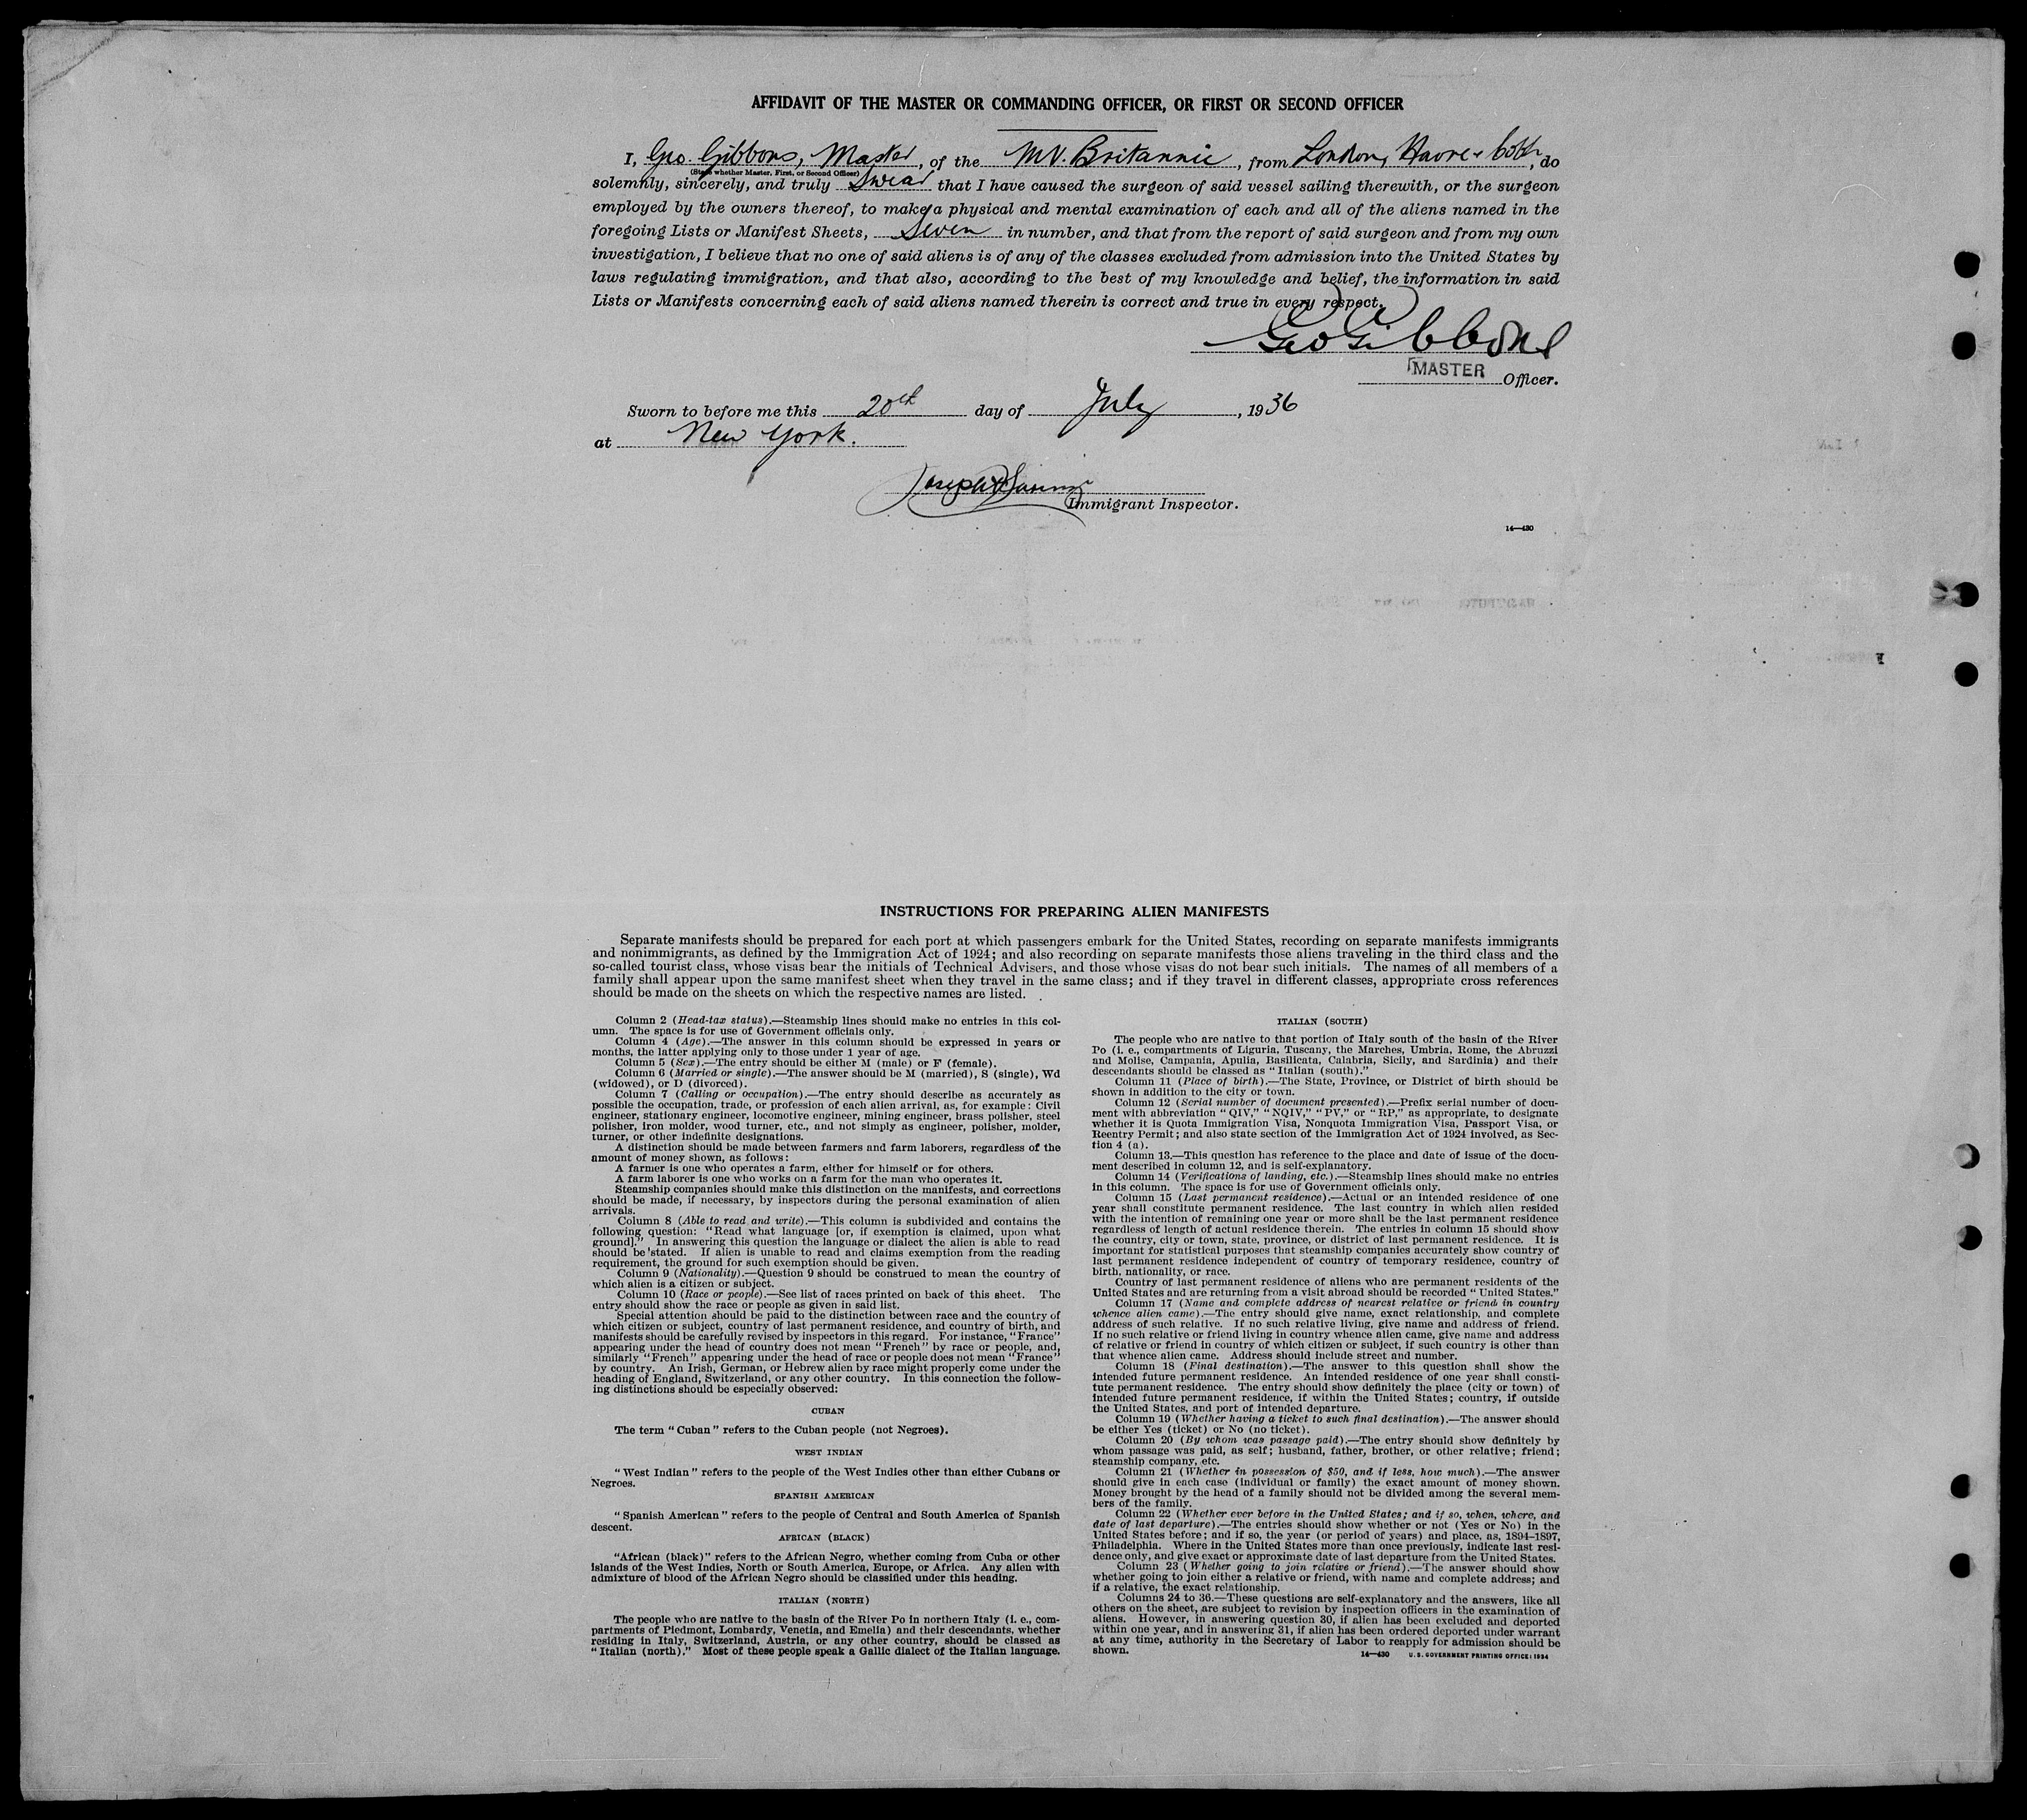 AFFIDAVIT OF THE MASTER OR COMMANDING OFFICER, OR FIRST OR SECOND OFFICER
I, Geo. Gibbons, Master, of the MV. Britannic, from London, Havre & Cobh, do
(State whether Master, First, or Second Officer)
solemnly, sincerely, and truly Swear that I have caused the surgeon of said vessel sailing therewith, or the surgeon
employed by the owners thereof, to make a physical and mental examination of each and all of the aliens named in the
foregoing Lists or Manifest Sheets, Seven in number, and that from the report of said surgeon and from my own
investigation, I believe that no one of said aliens is of any of the classes excluded from admission into the United States by
laws regulating immigration, and that also, according to the best of my knowledge and belief, the information in said
Lists or Manifests concerning each of said aliens named therein is correct and true in every respect.
Geo Gibbons
MASTER Officer.
Sworn to before me this 20th day of July, 1936
at New York.
Joseph
Immigrant Inspector.
14—430
INSTRUCTIONS FOR PREPARING ALIEN MANIFESTS
Separate manifests should be prepared for each port at which passengers embark for the United States, recording on separate manifests immigrants
and nonimmigrants, as defined by the Immigration Act of 1924; and also recording on separate manifests those aliens traveling in the third class and the
so-called tourist class, whose visas bear the initials of Technical Advisers, and those whose visas do not bear such initials. The names of all members of a
family shall appear upon the same manifest sheet when they travel in the same class; and if they travel in different classes, appropriate cross references
should be made on the sheets on which the respective names are listed.
Column 2 (Head-tax status).—Steamship lines should make no entries in this col-
umn. The space is for use of Government officials only.
Column 4 (Age).—The answer in this column should be expressed in years or
months, the latter applying only to those under 1 year of age.
Column 5 (Sex).—The entry should be either M (male) or F (female).
Column 6 (Married or single).—The answer should be M (married), S (single), Wd
(widowed), or D (divorced).
Column 7 (Calling or occupation).—The entry should describe as accurately as
possible the occupation, trade, or profession of each alien arrival, as, for example: Civil
engineer, stationary engineer, locomotive engineer, mining engineer, brass polisher, steel
polisher, iron molder, wood turner, etc., and not simply as engineer, polisher, molder,
turner, or other indefinite designations.
A distinction should be made between farmers and farm laborers, regardless of the
amount of money shown, as follows:
A farmer is one who operates a farm, either for himself or for others.
A farm laborer is one who works on a farm for the man who operates it.
Steamship companies should make this distinction on the manifests, and corrections
should be made, if necessary, by inspectors during the personal examination of alien
arrivals.
Column 8 (Able to read and write).—This column is subdivided and contains the
following question: "Read what language [or, if exemption is claimed, upon what
ground]." In answering this question the language or dialect the alien is able to read
should be stated. If alien is unable to read and claims exemption from the reading
requirement, the ground for such exemption should be given.
Column 9 (Nationality).—Question 9 should be construed to mean the country of
which alien is a citizen or subject.
Column 10 (Race or people).—See list of races printed on back of this sheet. The
entry should show the race or people as given in said list.
Special attention should be paid to the distinction between race and the country of
which citizen or subject, country of last permanent residence, and country of birth, and
manifests should be carefully revised by inspectors in this regard. For instance, "France"
appearing under the head of country does not mean "French" by race or people, and,
similarly "French" appearing under the head of race or people does not mean "France"
by country. An Irish, German, or Hebrew alien by race might properly come under the
heading of England, Switzerland, or any other country. In this connection the follow-
ing distinctions should be especially observed:
CUBAN
The term "Cuban" refers to the Cuban people (not Negroes).
WEST INDIAN
"West Indian" refers to the people of the West Indies other than either Cubans or
Negroes.
SPANISH AMERICAN
"Spanish American" refers to the people of Central and South America of Spanish
descent.
AFRICAN (BLACK)
"African (black)" refers to the African Negro, whether coming from Cuba or other
islands of the West Indies, North or South America, Europe, or Africa. Any alien with
admixture of blood of the African Negro should be classified under this heading.
ITALIAN (NORTH)
The people who are native to the basin of the River Po in northern Italy (i. e., com-
partments of Piedmont, Lombardy, Venetia, and Emelia) and their descendants, whether
residing in Italy, Switzerland, Austria, or any other country, should be classed as
"Italian (north)." Most of these people speak a Gallic dialect of the Italian language.
ITALIAN (SOUTH)
The people who are native to that portion of Italy south of the basin of the River
Po (i. e., compartments of Liguria, Tuscany, the Marches, Umbria, Rome, the Abruzzi
and Molise, Campania, Apulia, Basilicata, Calabria, Sicily, and Sardinia) and their
descendants should be classed as "Italian (south)."
Column 11 (Place of birth).—The State, Province, or District of birth should be
shown in addition to the city or town.
Column 12 (Serial number of document presented).—Prefix serial number of docu-
ment with abbreviation "QIV," "NQIV," "PV," or "RP," as appropriate, to designate
whether it is Quota Immigration Visa, Nonquota Immigration Visa, Passport Visa, or
Reentry Permit; and also state section of the Immigration Act of 1924 involved, as Sec-
tion 4 (a).
Column 13.—This question has reference to the place and date of issue of the docu-
ment described in column 12, and is self-explanatory.
Column 14 (Verifications of landing, etc.).—Steamship lines should make no entries
in this column. The space is for use of Government officials only.
Column 15 (Last permanent residence).—Actual or an intended residence of one
year shall constitute permanent residence. The last country in which alien resided
with the intention of remaining one year or more shall be the last permanent residence
regardless of length of actual residence therein. The entries in column 15 should show
the country, city or town, state, province, or district of last permanent residence. It is
important for statistical purposes that steamship companies accurately show country of
last permanent residence independent of country of temporary residence, country of
birth, nationality, or race.
Country of last permanent residence of aliens who are permanent residents of the
United States and are returning from a visit abroad should be recorded "United States."
Column 17 (Name and complete address of nearest relative or friend in country
whence alien came).—The entry should give name, exact relationship, and complete
address of such relative. If no such relative living, give name and address of friend.
If no such relative or friend living in country whence alien came, give name and address
of relative or friend in country of which citizen or subject, if such country is other than
that whence alien came. Address should include street and number.
Column 18 (Final destination).—The answer to this question shall show the
intended future permanent residence. An intended residence of one year shall consti-
tute permanent residence. The entry should show definitely the place (city or town) of
intended future permanent residence, if within the United States; country, if outside
the United States, and port of intended departure.
Column 19 (Whether having a ticket to such final destination).—The answer should
be either Yes (ticket) or No (no ticket).
Column 20 (By whom was passage paid).—The entry should show definitely by
whom passage was paid, as self; husband, father, brother, or other relative; friend;
steamship company, etc.
Column 21 (Whether in possession of $50, and if less, how much).—The answer
should give in each case (individual or family) the exact amount of money shown.
Money brought by the head of a family should not be divided among the several mem-
bers of the family.
Column 22 (Whether ever before in the United States; and if so, when, where, and
date of last departure).—The entries should show whether or not (Yes or No) in the
United States before; and if so, the year (or period of years) and place, as, 1894–1897,
Philadelphia. Where in the United States more than once previously, indicate last resi-
dence only, and give exact or approximate date of last departure from the United States.
Column 23 (Whether going to join relative or friend).—The answer should show
whether going to join either a relative or friend, with name and complete address; and
if a relative, the exact relationship.
Columns 24 to 36.—These questions are self-explanatory and the answers, like all
others on the sheet, are subject to revision by inspection officers in the examination of
aliens. However, in answering question 30, if alien has been excluded and deported
within one year, and in answering 31, if alien has been ordered deported under warrant
at any time, authority in the Secretary of Labor to reapply for admission should be
shown.
14—430 U.S. GOVERNMENT PRINTING OFFICE: 1934